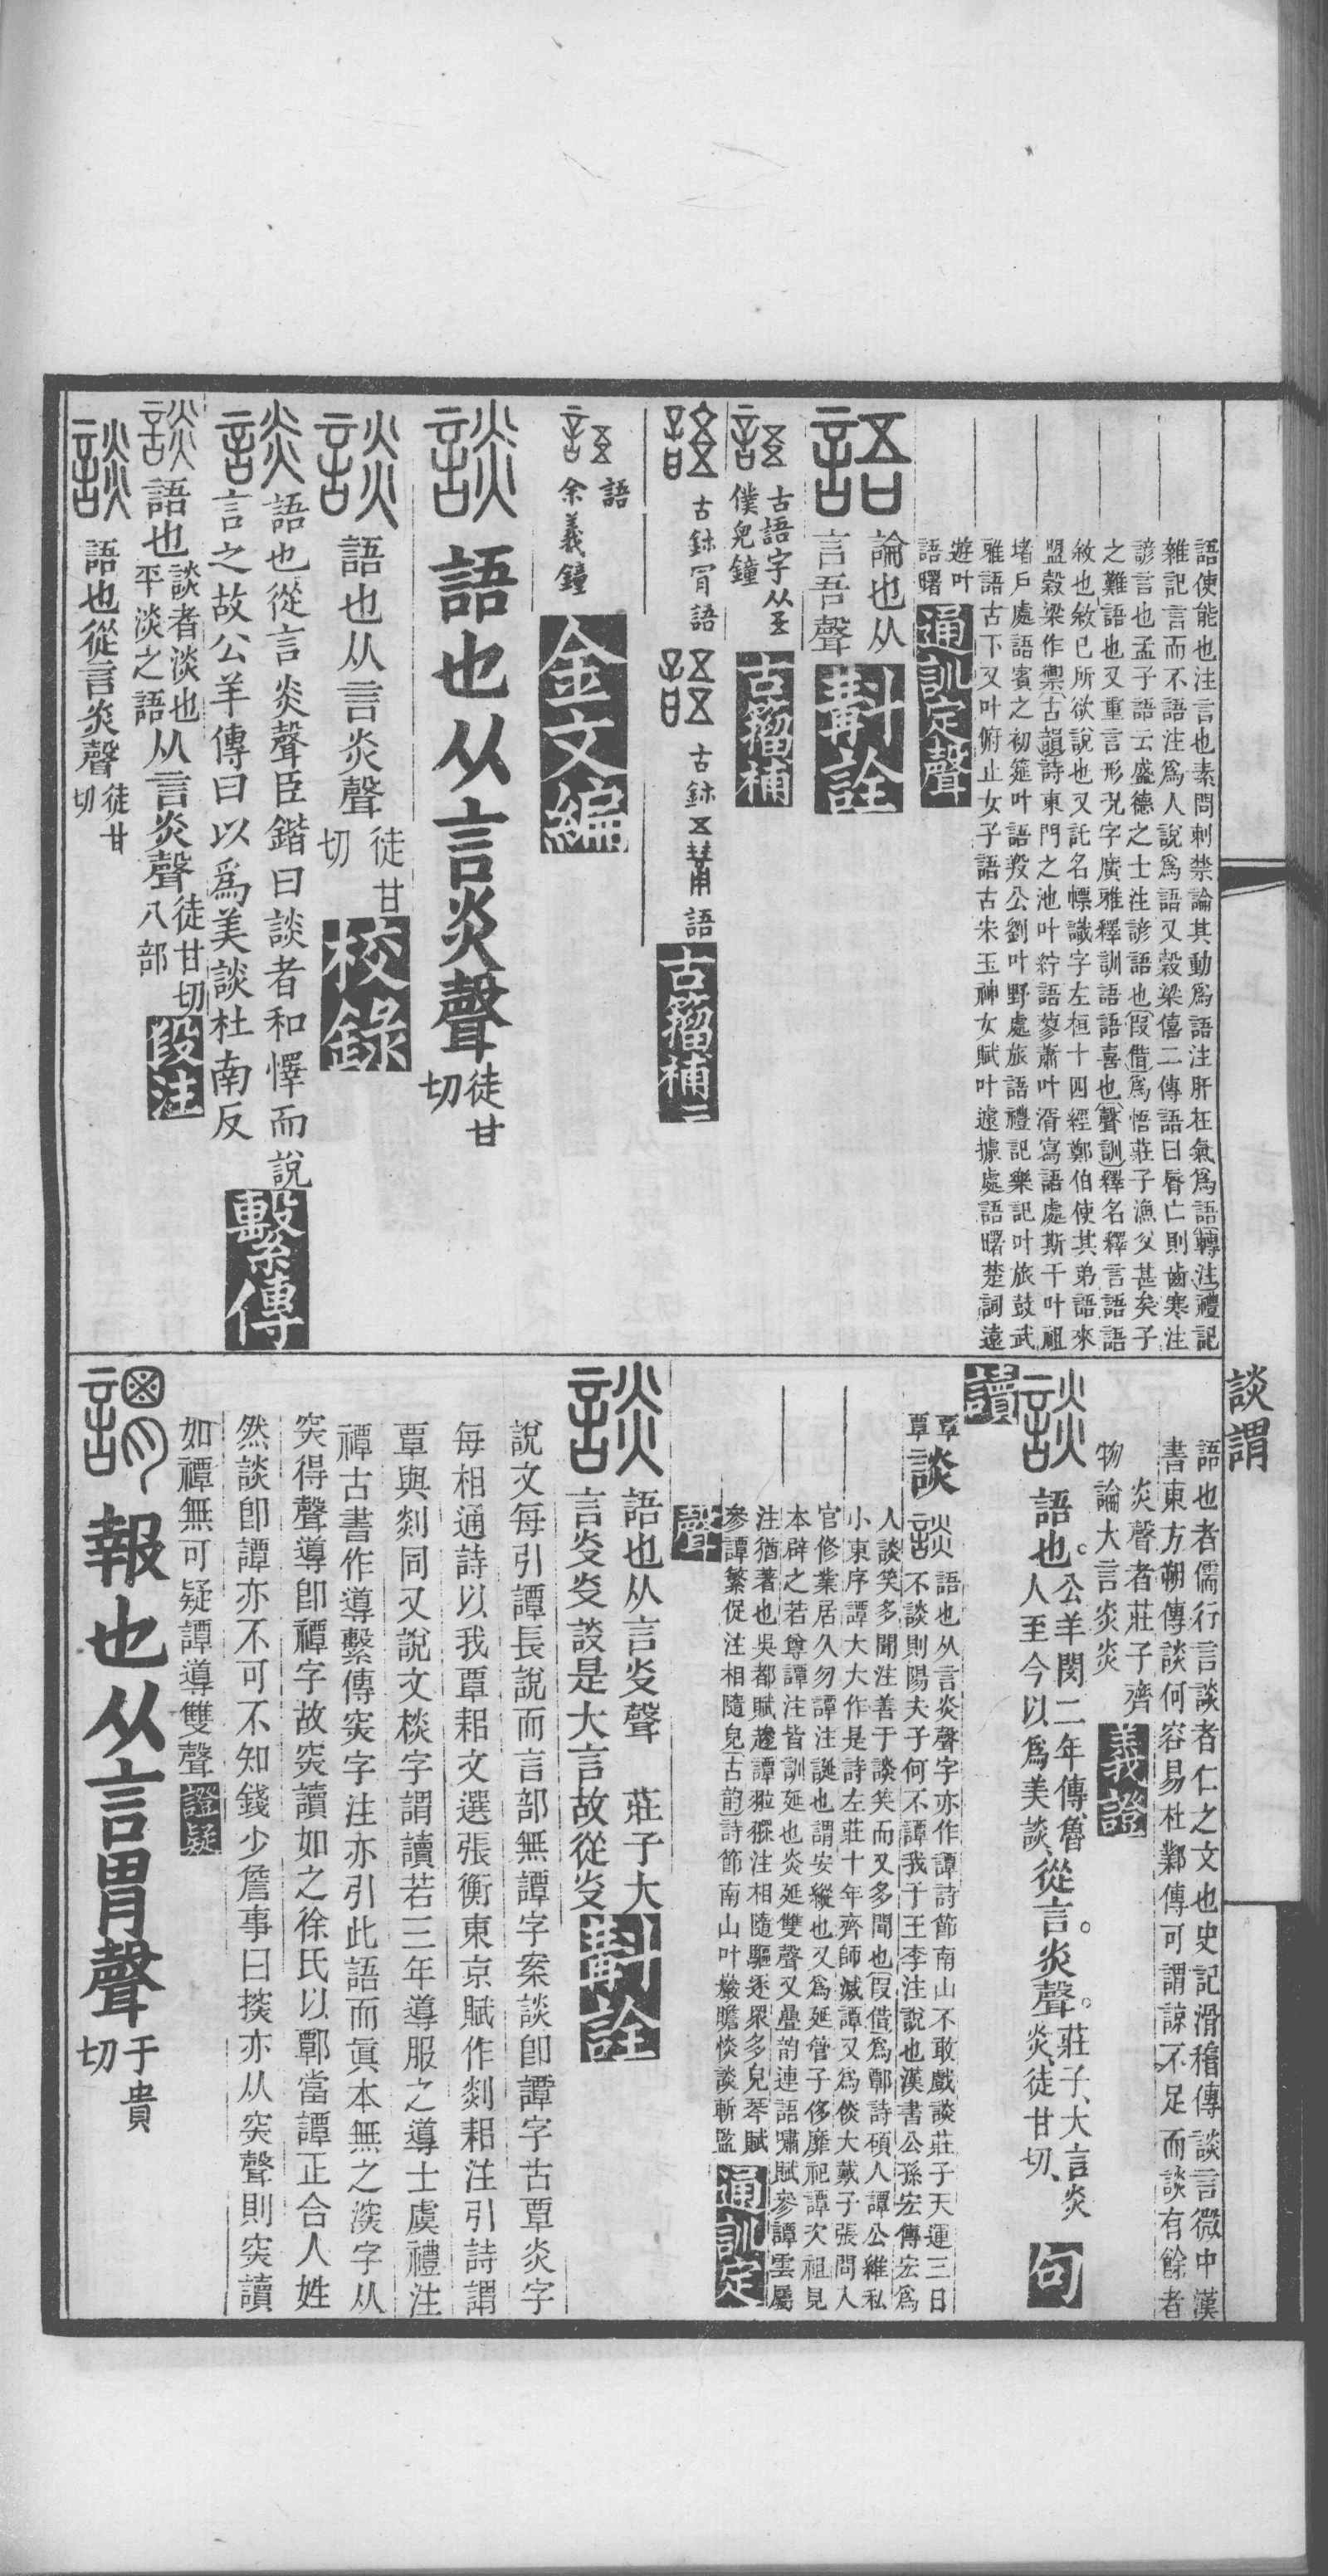 語使能也注言也素問刺禁論其動爲語注肝在氣爲語轉注禮記
雜記言而不語注爲人說爲語又穀梁僖二傳語曰脣亡則齒寒注
諺言也孟子語云盛德之士注諺語也叚借爲悟莊子漁父甚矣子
之難語也又重言形況字廣雅釋訓語語喜也聲訓釋名釋言語語
敘也敘已所欲說也又託名幖識字左桓十四經鄭伯使其弟語來
盟穀梁作禦古韻詩東門之池叶紵語蓼蕭叶湑寫語處斯干叶祖
堵戶處語賓之初筵叶語羖公劉叶野處旅語禮記樂記叶旅鼓武
雅語古下又叶俯止女子語古宋玉神女賦叶遽據處語曙楚詞遠
遊叶
語曙
通訓定聲
論也从
言吾聲
斠詮
古語字从
僕兒鐘
古籀補
古鉥
語
古鉥
語
古籀補二
語
余義鐘
金文編
談
語也从言炎聲
徒甘
切
語也从言炎聲
徒甘
切
校錄
語也從言炎聲臣鍇曰談者和懌而說
言之故公羊傳曰以爲美談杜南反
繫傳
語也
談者淡也
平淡之語
从言炎聲
徒甘切
八部
段注
語也從言炎聲
徒甘
切
談謂
語也者儒行言談者仁之文也史記滑稽傳談言微中漢
書東方朔傳談何容易杜鄴傳可謂諒不足而談有餘者
炎聲者莊子齊
物論大言炎炎
義證
語也。
公羊閔二年傳魯
人至今以爲美談
從言。炎聲。
莊子、大言炎
炎、徒甘切、
句
讀
覃
覃
談
語也从言炎聲字亦作譚詩節南山不敢戲談莊子天運三日
不談則陽夫子何不譚我于王李注說也漢書公孫宏傳宏爲
人談笑多聞注善于談笑而又多聞也叚借爲鄲詩碩人譚公維私
小東序譚大大作是詩左莊十年齊師滅譚又爲倓大戴子張問人
官修業居久勿譚注誕也謂安縱也又爲延管子侈靡祀譚次祖見
本辟之若尊譚注皆訓延也炎延雙聲又疊韵連語嘯賦參譚雲屬
注猶著也吳都賦趁譚猭注相隨驅逐眾多皃琴賦
參譚繁促注相隨皃古韵詩節南山叶巖瞻惔談斬監
通訓定
聲
語也从言炎聲 莊子大
言炎炎談是大言故從炎
斠詮
說文每引譚長說而言部無譚字案談卽譚字古覃炎字
每相通詩以我覃耜文選張衡東京賦作剡耜注引詩謂
覃與剡同又說文棪字謂讀若三年導服之導士虞禮注
禫古書作導繫傳突字注亦引此語而眞本無之湥字从
突得聲導卽禫字故突讀如之徐氏以鄲當譚正合人姓
然談卽譚亦不可不知錢少詹事曰 亦从突聲則突讀
如禫無可疑譚導雙聲
證疑
報也从言胃聲
于貴
切